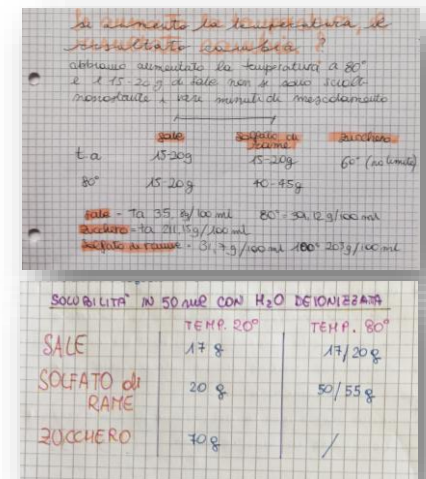 Se aumento la temperatura, il
risultato cambia?
abbiamo aumentato la temperatura a 80°
e i 15-20g di sale non si sono sciolti
nonostante i vari minuti di mescolamento
sale solfato di rame zucchero
t.a 15-20g 15-20g 60° (no limite)
80° 15-20g 40-45g
sale - Ta 35, 8g/100 ml 80° = 39,12g/100 ml
zucchero - ta 211,15g/100 ml
solfato di rame - 31,7g/100 ml 100° 203g/100 ml
SOLUBILITA' IN 50 ml CON H₂O DEIONIZZATA
TEMP. 20° TEMP. 80°
SALE 17 g 17/20 g
SOLFATO di RAME 20 g 50/55 g
ZUCCHERO 70 g /